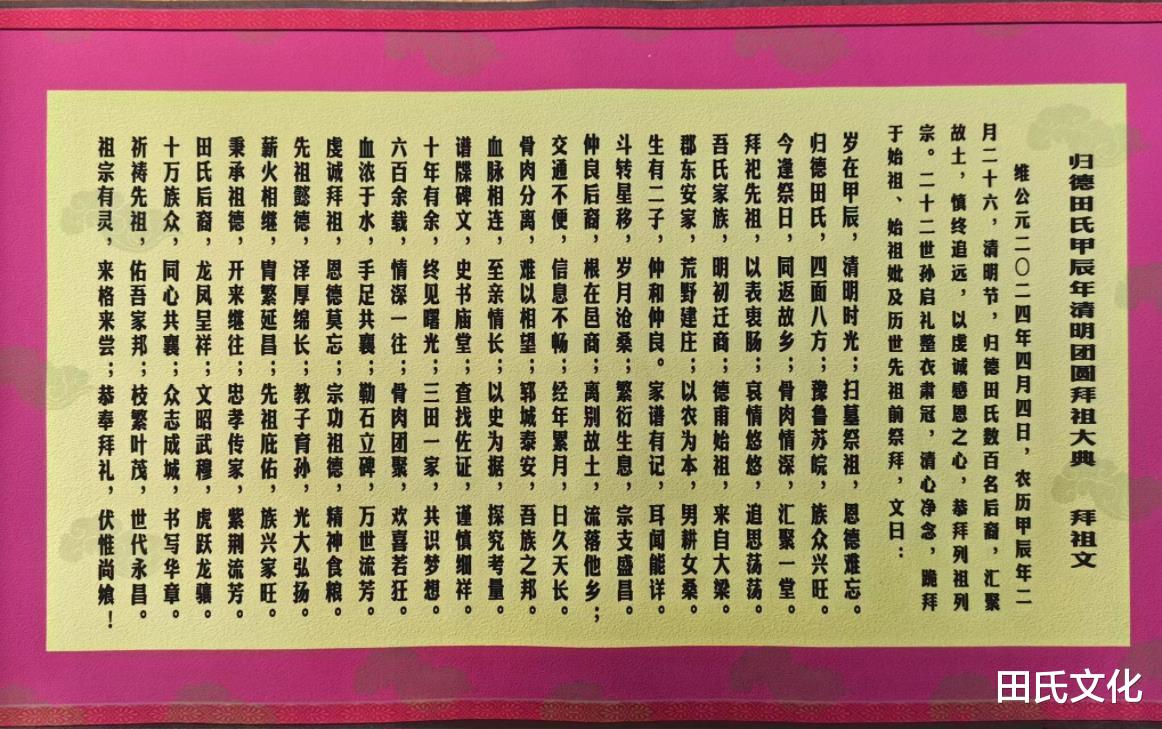 归德田氏甲辰年清明团圆拜祖大典 拜祖文
维公元二〇二四年四月四日，农历甲辰年二
月二十六，清明节，归德田氏数百名后裔，汇聚
故土，慎终追远，以虔诚感恩之心，恭拜列祖列
宗。二十二世孙启礼整衣肃冠，清心净念，跪拜
于始祖、始祖妣及历世先祖前祭拜，文曰：
岁在甲辰，清明时光；扫墓祭祖，恩德难忘。
归德田氏，四面八方；豫鲁苏皖，族众兴旺。
今逢祭日，同返故乡；骨肉情深，汇聚一堂。
拜祀先祖，以表衷肠；哀情悠悠，追思荡荡。
吾氏家族，明初迁商；德甫始祖，来自大梁。
郡东安家，荒野建庄；以农为本，男耕女桑。
生有二子，仲和仲良。家谱有记，耳闻能详。
斗转星移，岁月沧桑；繁衍生息，宗支盛昌。
仲良后裔，根在邑商；离别故土，流落他乡；
交通不便，信息不畅；经年累月，日久天长。
骨肉分离，难以相望；郓城泰安，吾族之邦。
血脉相连，至亲情长；以史为据，探究考量。
谱牒碑文，史书庙堂；查找佐证，谨慎细祥。
十年有余，终见曙光；三田一家，共识梦想。
六百余载，情深一往；骨肉团聚，欢喜若狂。
血浓于水，手足共襄；勒石立碑，万世流芳。
虔诚拜祖，恩德莫忘；宗功祖德，精神食粮。
先祖懿德，泽厚绵长；教子育孙，光大弘扬。
薪火相继，胄繁延昌；先祖庇佑，族兴家旺。
秉承祖德，开来继往；忠孝传家，紫荆流芳。
田氏后裔，龙凤呈祥；文昭武穆，虎跃龙骧。
十万族众，同心共襄；众志成城，书写华章。
祈祷先祖，佑吾家邦；枝繁叶茂，世代永昌。
祖宗有灵，来格来尝；恭奉拜礼，伏惟尚飨！
田氏文化